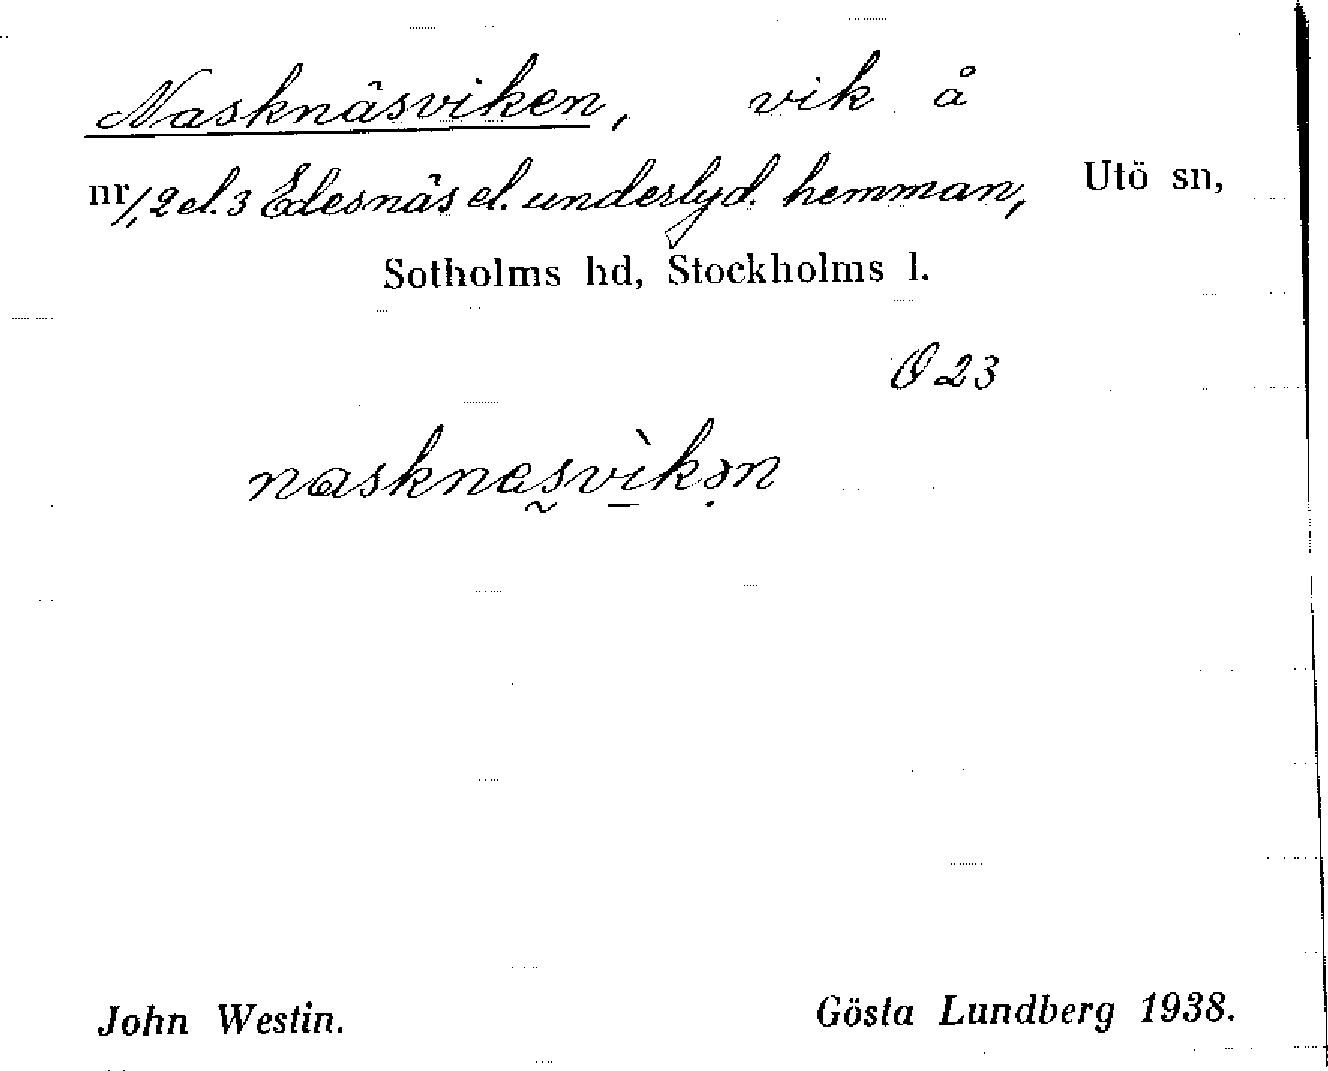 Nasknäsviken, vik å
nr 1, 2 el. 3 Edesnäs el. underlyd. hemman, Utö sn,
Sotholms hd, Stockholms l.
Ö 23
nasknɑs̰vìkə̣n
John Westin. Gösta Lundberg 1938.